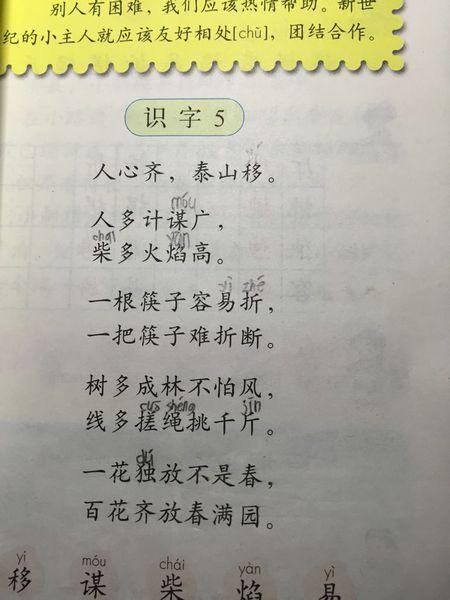 别人有困难，我们应该热情帮助。新世
纪的小主人就应该友好相处[chǔ]，团结合作。
识字5
人心齐，泰山移。
móu
人多计谋广，
chái yàn
柴多火焰高。
yì zhé
一根筷子容易折，
一把筷子难折断。
树多成林不怕风，
cuō shéng jīn
线多搓绳挑千斤。
dú
一花独放不是春，
百花齐放春满园。
yí móu chái yàn yì
移 谋 柴 焰 易